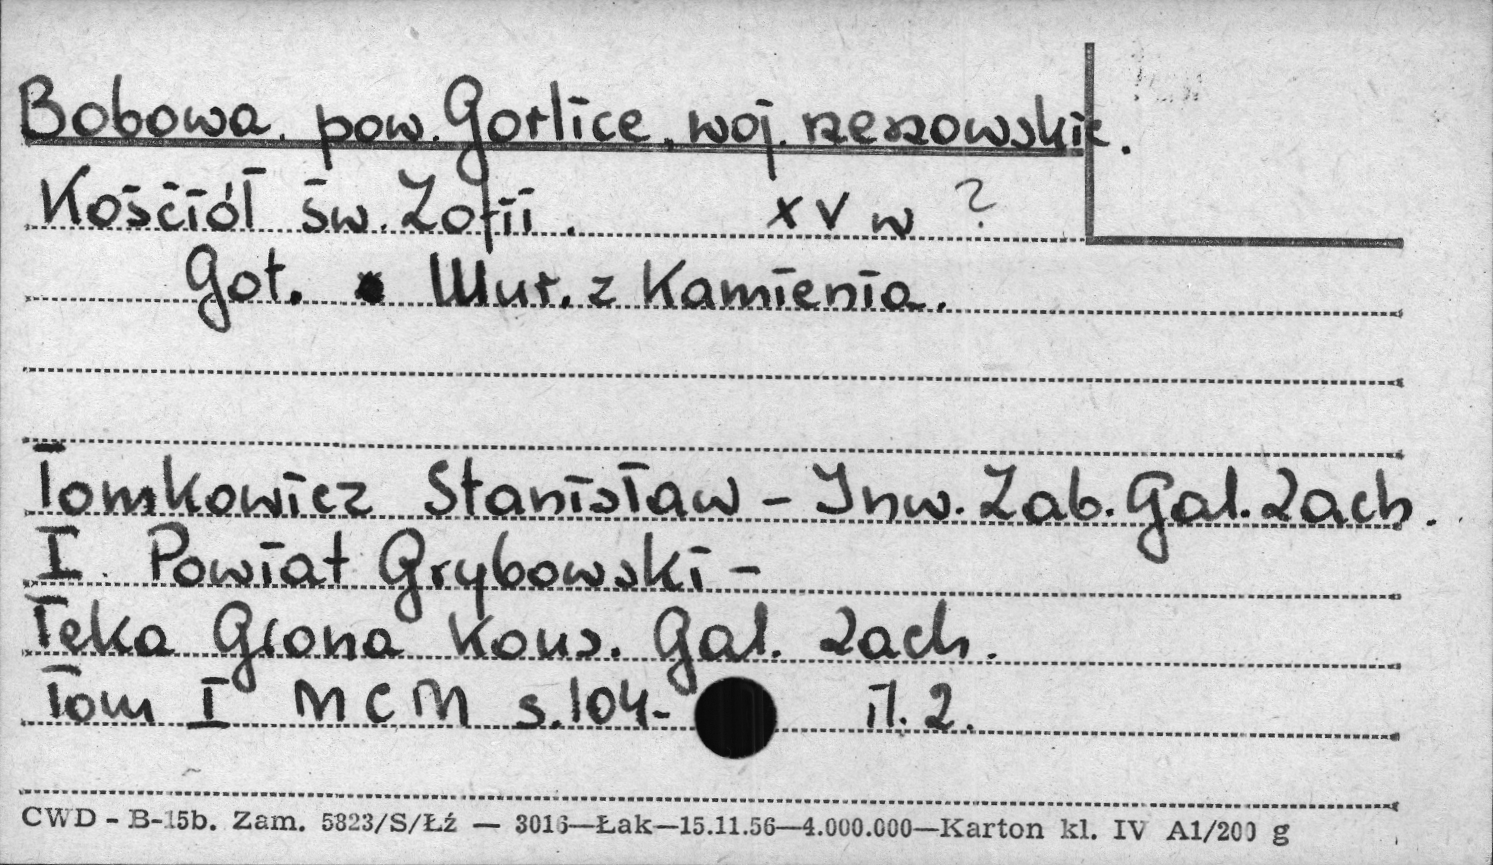 Bobowa. pow. Gorlice. woj. rzeszowskie.
Kościół św. Zofii. XV w ?
Got. Mur. z Kamienia.
Tomkowicz Stanisław - Inw. Zab. Gal. Zach.
I. Powiat Grybowski -
Teka Grona Kons. Gal. Zach.
Tom I MCM s.104- il. 2.
CWD - B-15b. Zam. 5823/S/Łź — 3016—Łak—15.11.56—4.000.000—Karton kl. IV A1/200 g